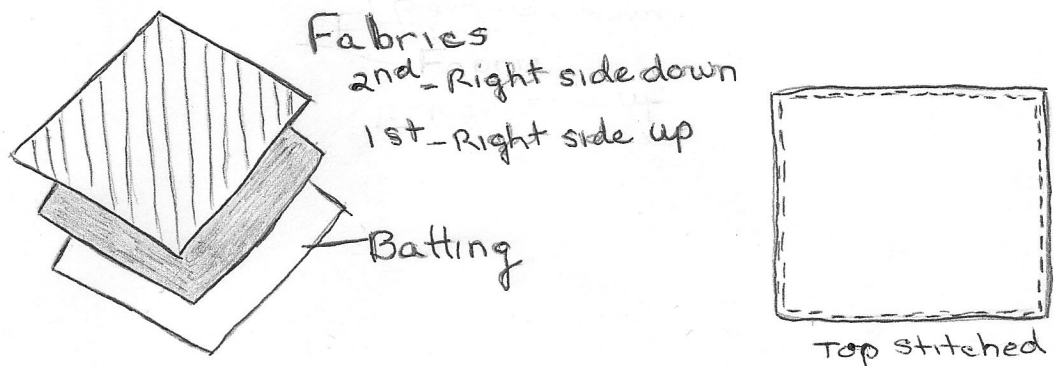 Fabrics
2nd - Right side down
1st - Right side up
Batting
Top Stitched